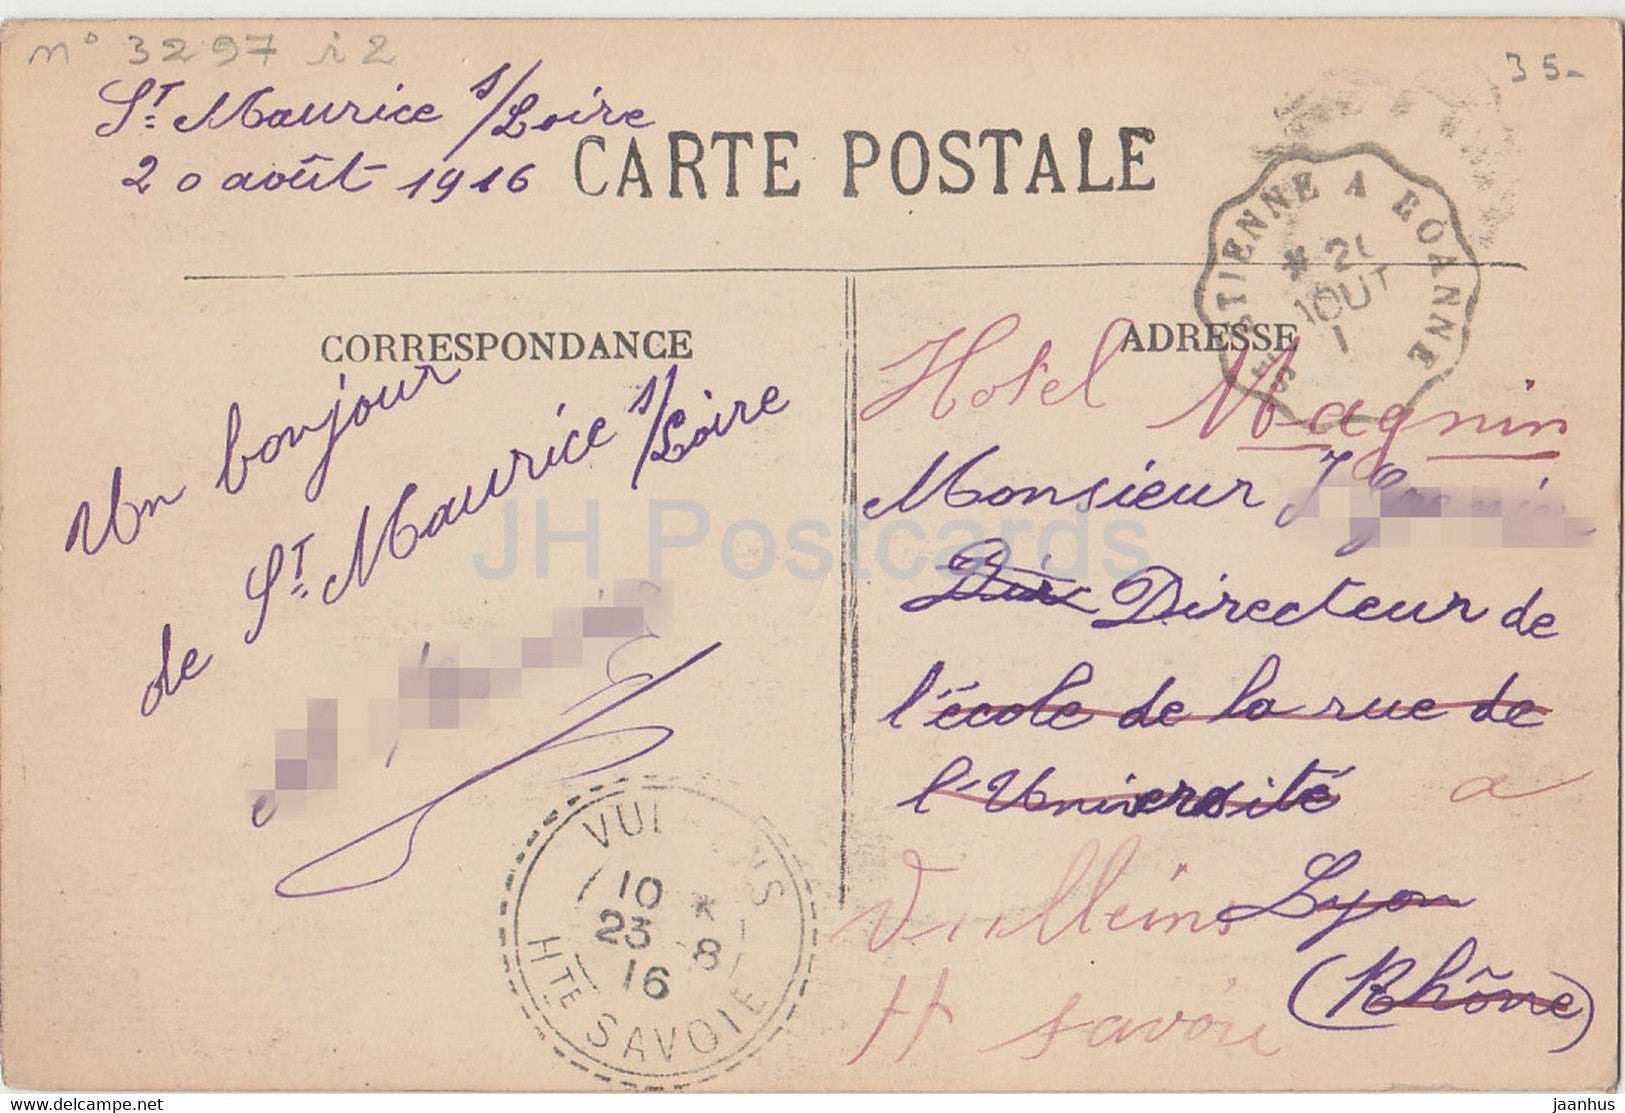 n° 3297 i2
35-
St. Maurice s/Loire
20 août 1916
CARTE POSTALE
St ETIENNE A ROANNE
* 2
AOUT
1
CORRESPONDANCE
ADRESSE
Un bonjour
de St. Maurice s/Loire
Hotel Magnin
Monsieur J
Dir Directeur de
l'école de la rue de
l'Université
a
Vulleins
Lyon
H Savoie
(Rhône)
VUL NS
10 *
23 8
16
HTE SAVOIE
JH Postcards
www.delcampe.net
jaanhus